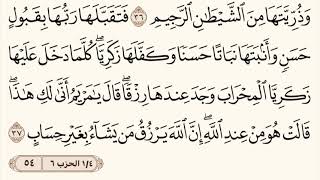 وَذُرِّيَّتَهَا مِنَ ٱلشَّيْطَٰنِ ٱلرَّجِيمِ ٣٦ فَتَقَبَّلَهَا رَبُّهَا بِقَبُولٍ
حَسَنٍ وَأَنۢبَتَهَا نَبَاتًا حَسَنًا وَكَفَّلَهَا زَكَرِيَّا ۖ كُلَّمَا دَخَلَ عَلَيْهَا
زَكَرِيَّا ٱلْمِحْرَابَ وَجَدَ عِندَهَا رِزْقًا ۖ قَالَ يَٰمَرْيَمُ أَنَّىٰ لَكِ هَٰذَا ۖ
قَالَتْ هُوَ مِنْ عِندِ ٱللَّهِ ۖ إِنَّ ٱللَّهَ يَرْزُقُ مَن يَشَآءُ بِغَيْرِ حِسَابٍ ٣٧
١/٤ الحزب ٦ ٥٤